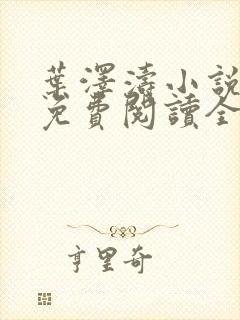 葉澤濤小說
免費閱讀全
亨里奇